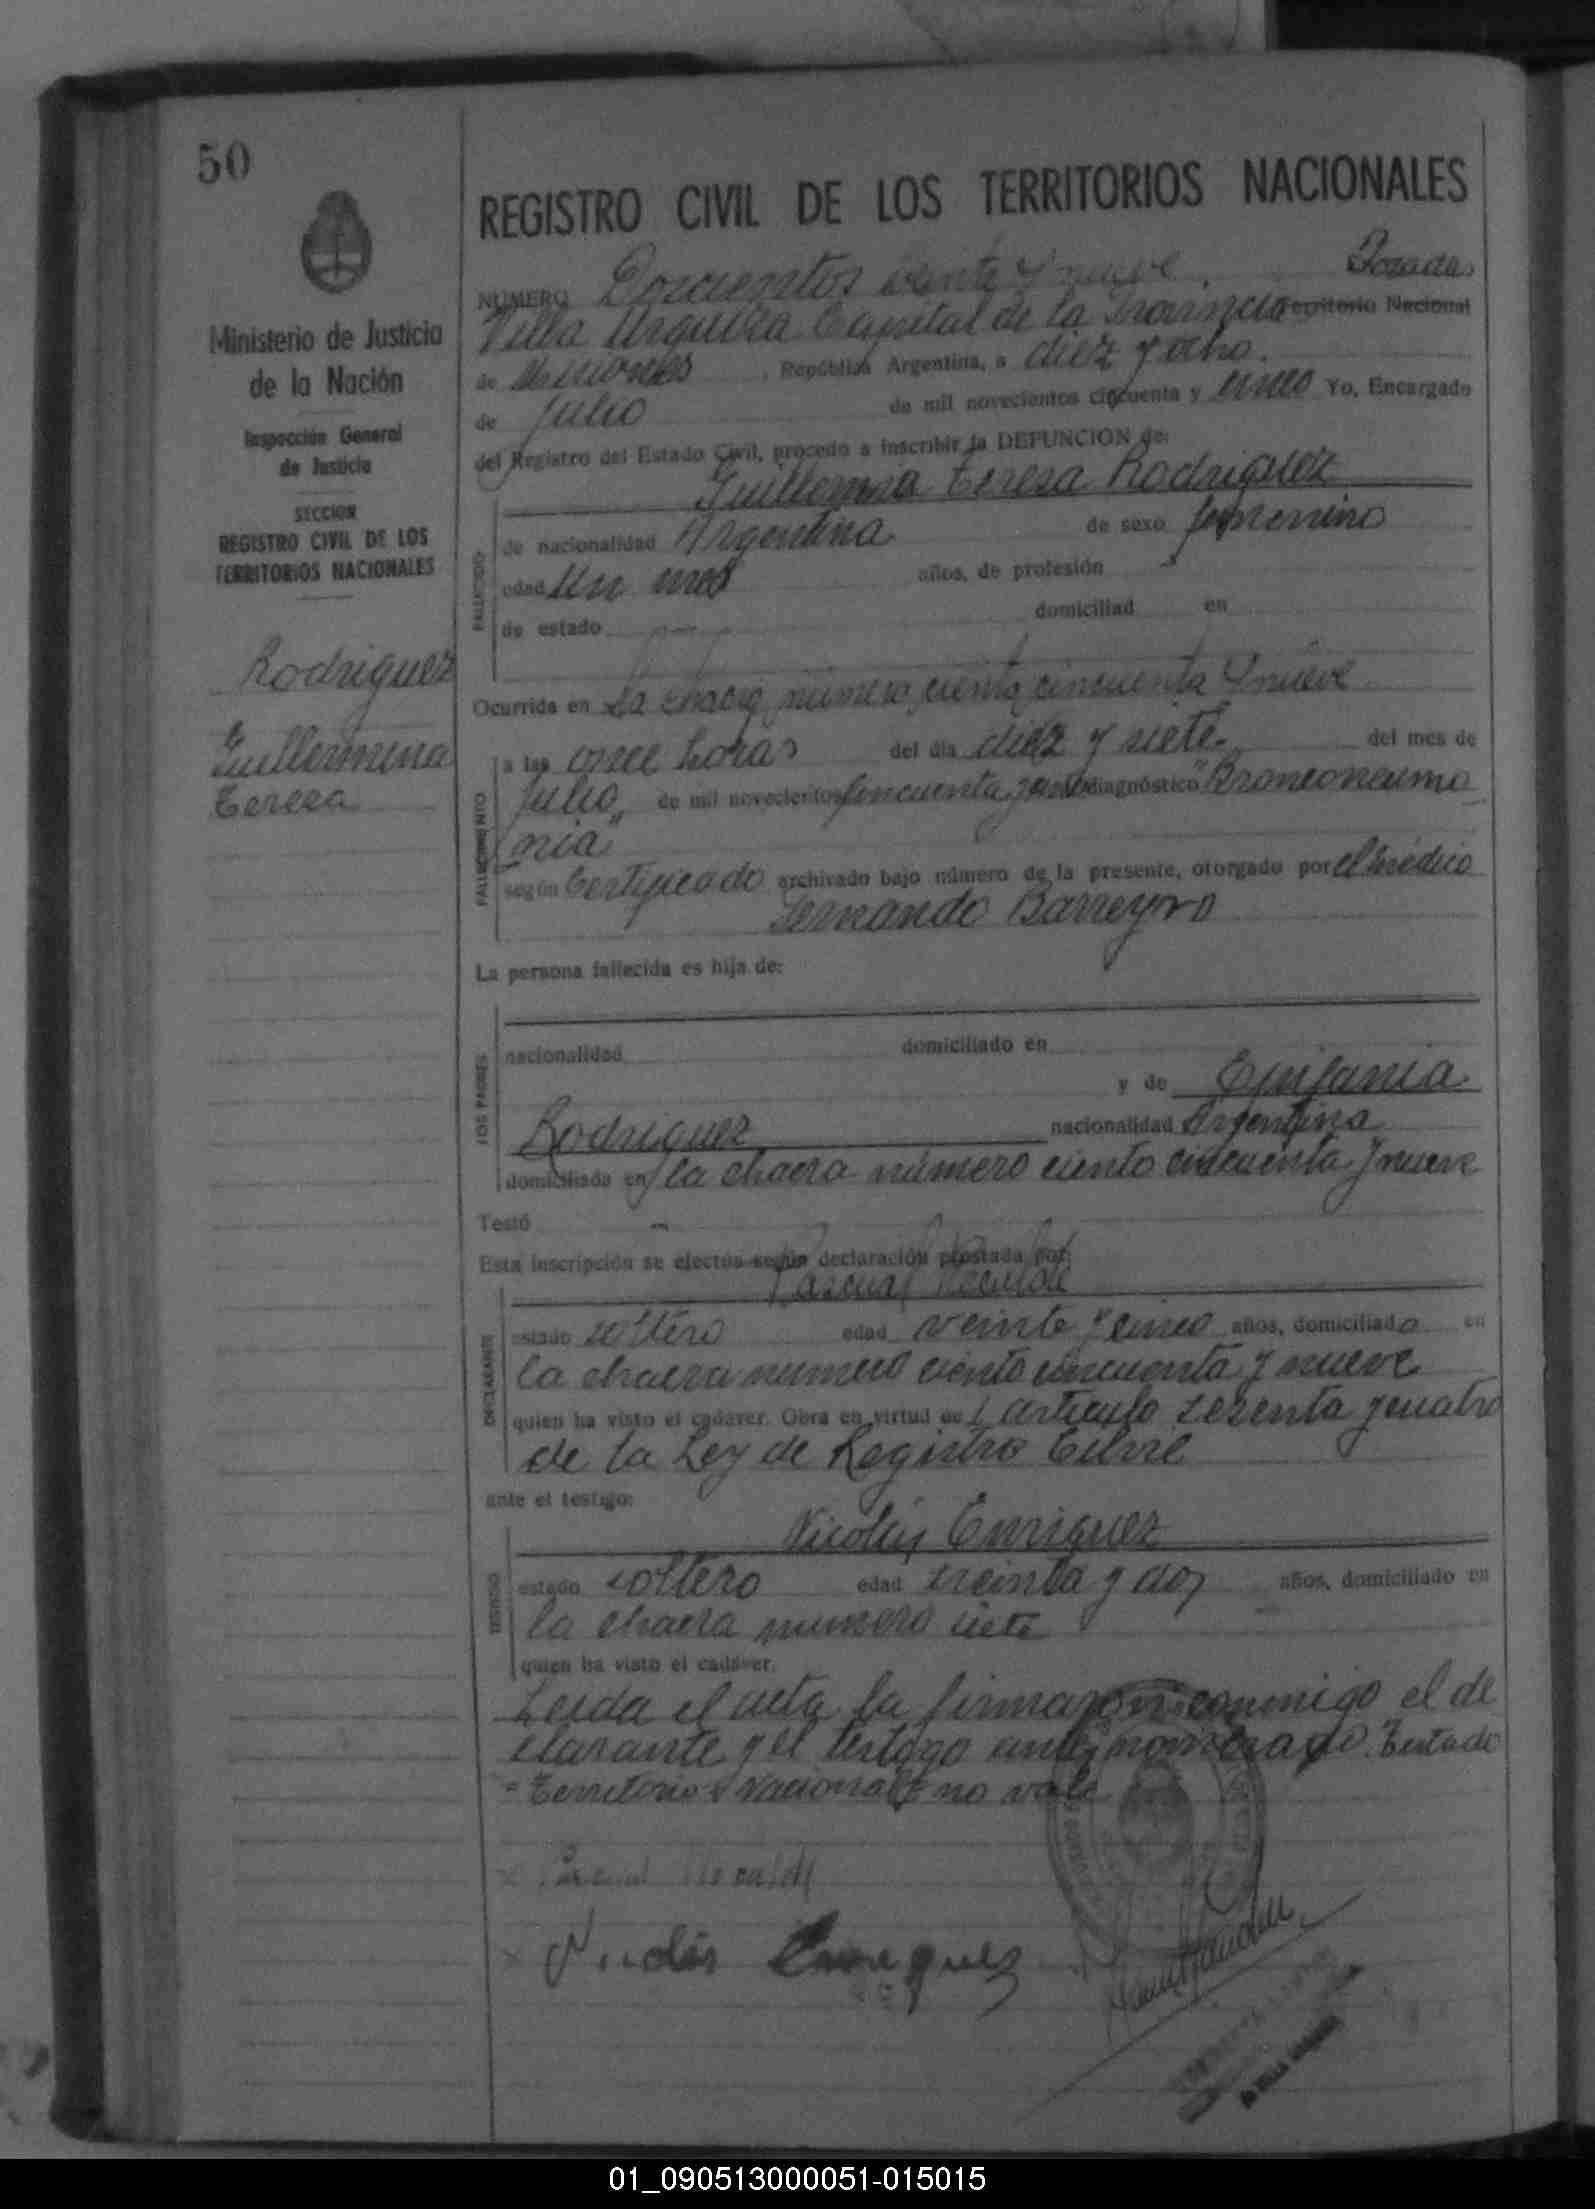 50
Ministerio de Justicia
de la Nación
Inspección General
de Justicia
SECCION
REGISTRO CIVIL DE LOS
TERRITORIOS NACIONALES
Rodriguez
Guillermina
Teresa
REGISTRO CIVIL DE LOS TERRITORIOS NACIONALES
NUMERO Doscientos veinte y nueve. Posadas
Villa Urquiza Capital de la Provincia Territorio Nacional
de Misiones, República Argentina, a diez y ocho.
de Julio de mil novecientos cincuenta y cinco Yo, Encargado
del Registro del Estado Civil, procedo a inscribir la DEFUNCION de:
Guillermina Teresa Rodriguez
FALLECIDO
de nacionalidad Argentina de sexo femenino
edad Un mes años, de profesión
de estado domiciliad en
Ocurrida en la chacra número ciento cincuenta y nueve
FALLECIMIENTO
a las once horas del día diez y siete. del mes de
Julio, de mil novecientos cincuenta y diagnóstico "Bronconeumo
nia"
según Certificado archivado bajo número de la presente, otorgado por el médico
Fernando Barreyro
La persona fallecida es hija de:
LOS PADRES
nacionalidad domiciliado en
y de Epifania
Rodriguez nacionalidad Argentina
domiciliada en la chacra número ciento cincuenta y nueve
Testó
Esta inscripción se efectúa según declaración prestada por:
Pascual Recalde
DECLARANTE
estado soltero edad veinte y cinco años, domiciliado en
la chacra numero ciento cincuenta y nueve
quien ha visto el cadáver. Obra en virtud del artículo sesenta y cuatro
de la Ley de Registro Civil
ante el testigo:
Nicolás Enriquez
TESTIGO
estado soltero edad treinta y dos años, domiciliado en
la chacra numero siete
quien ha visto el cadáver.
Leida el acta la firmaron conmigo el de
clarante y el testigo antes nombrado. Testado
"Territorio Nacional" no vale
Pascual Recalde
Nicolás Enriquez
01_090513000051-015015